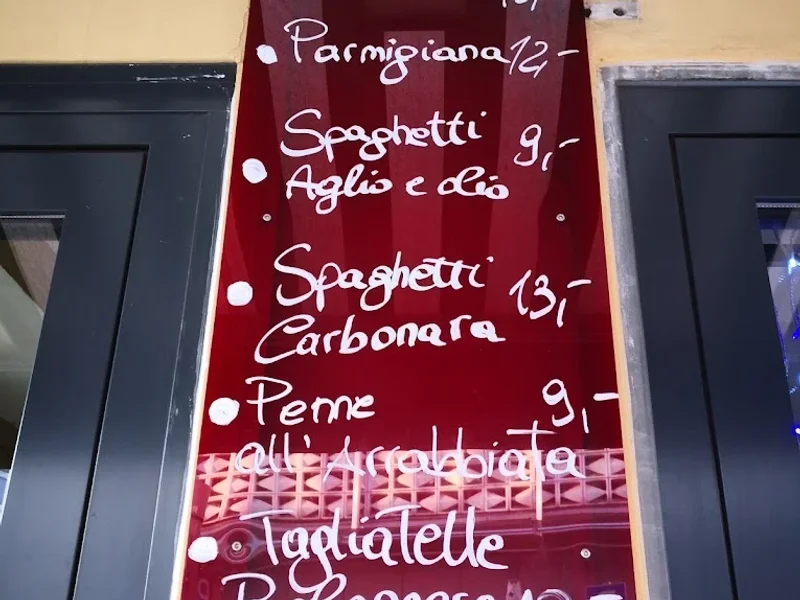 Parmigiana 12,-
Spaghetti 9,-
Aglio e olio
Spaghetti 13,-
Carbonara
Penne 9,-
all'Arrabbiata
Tagliatelle